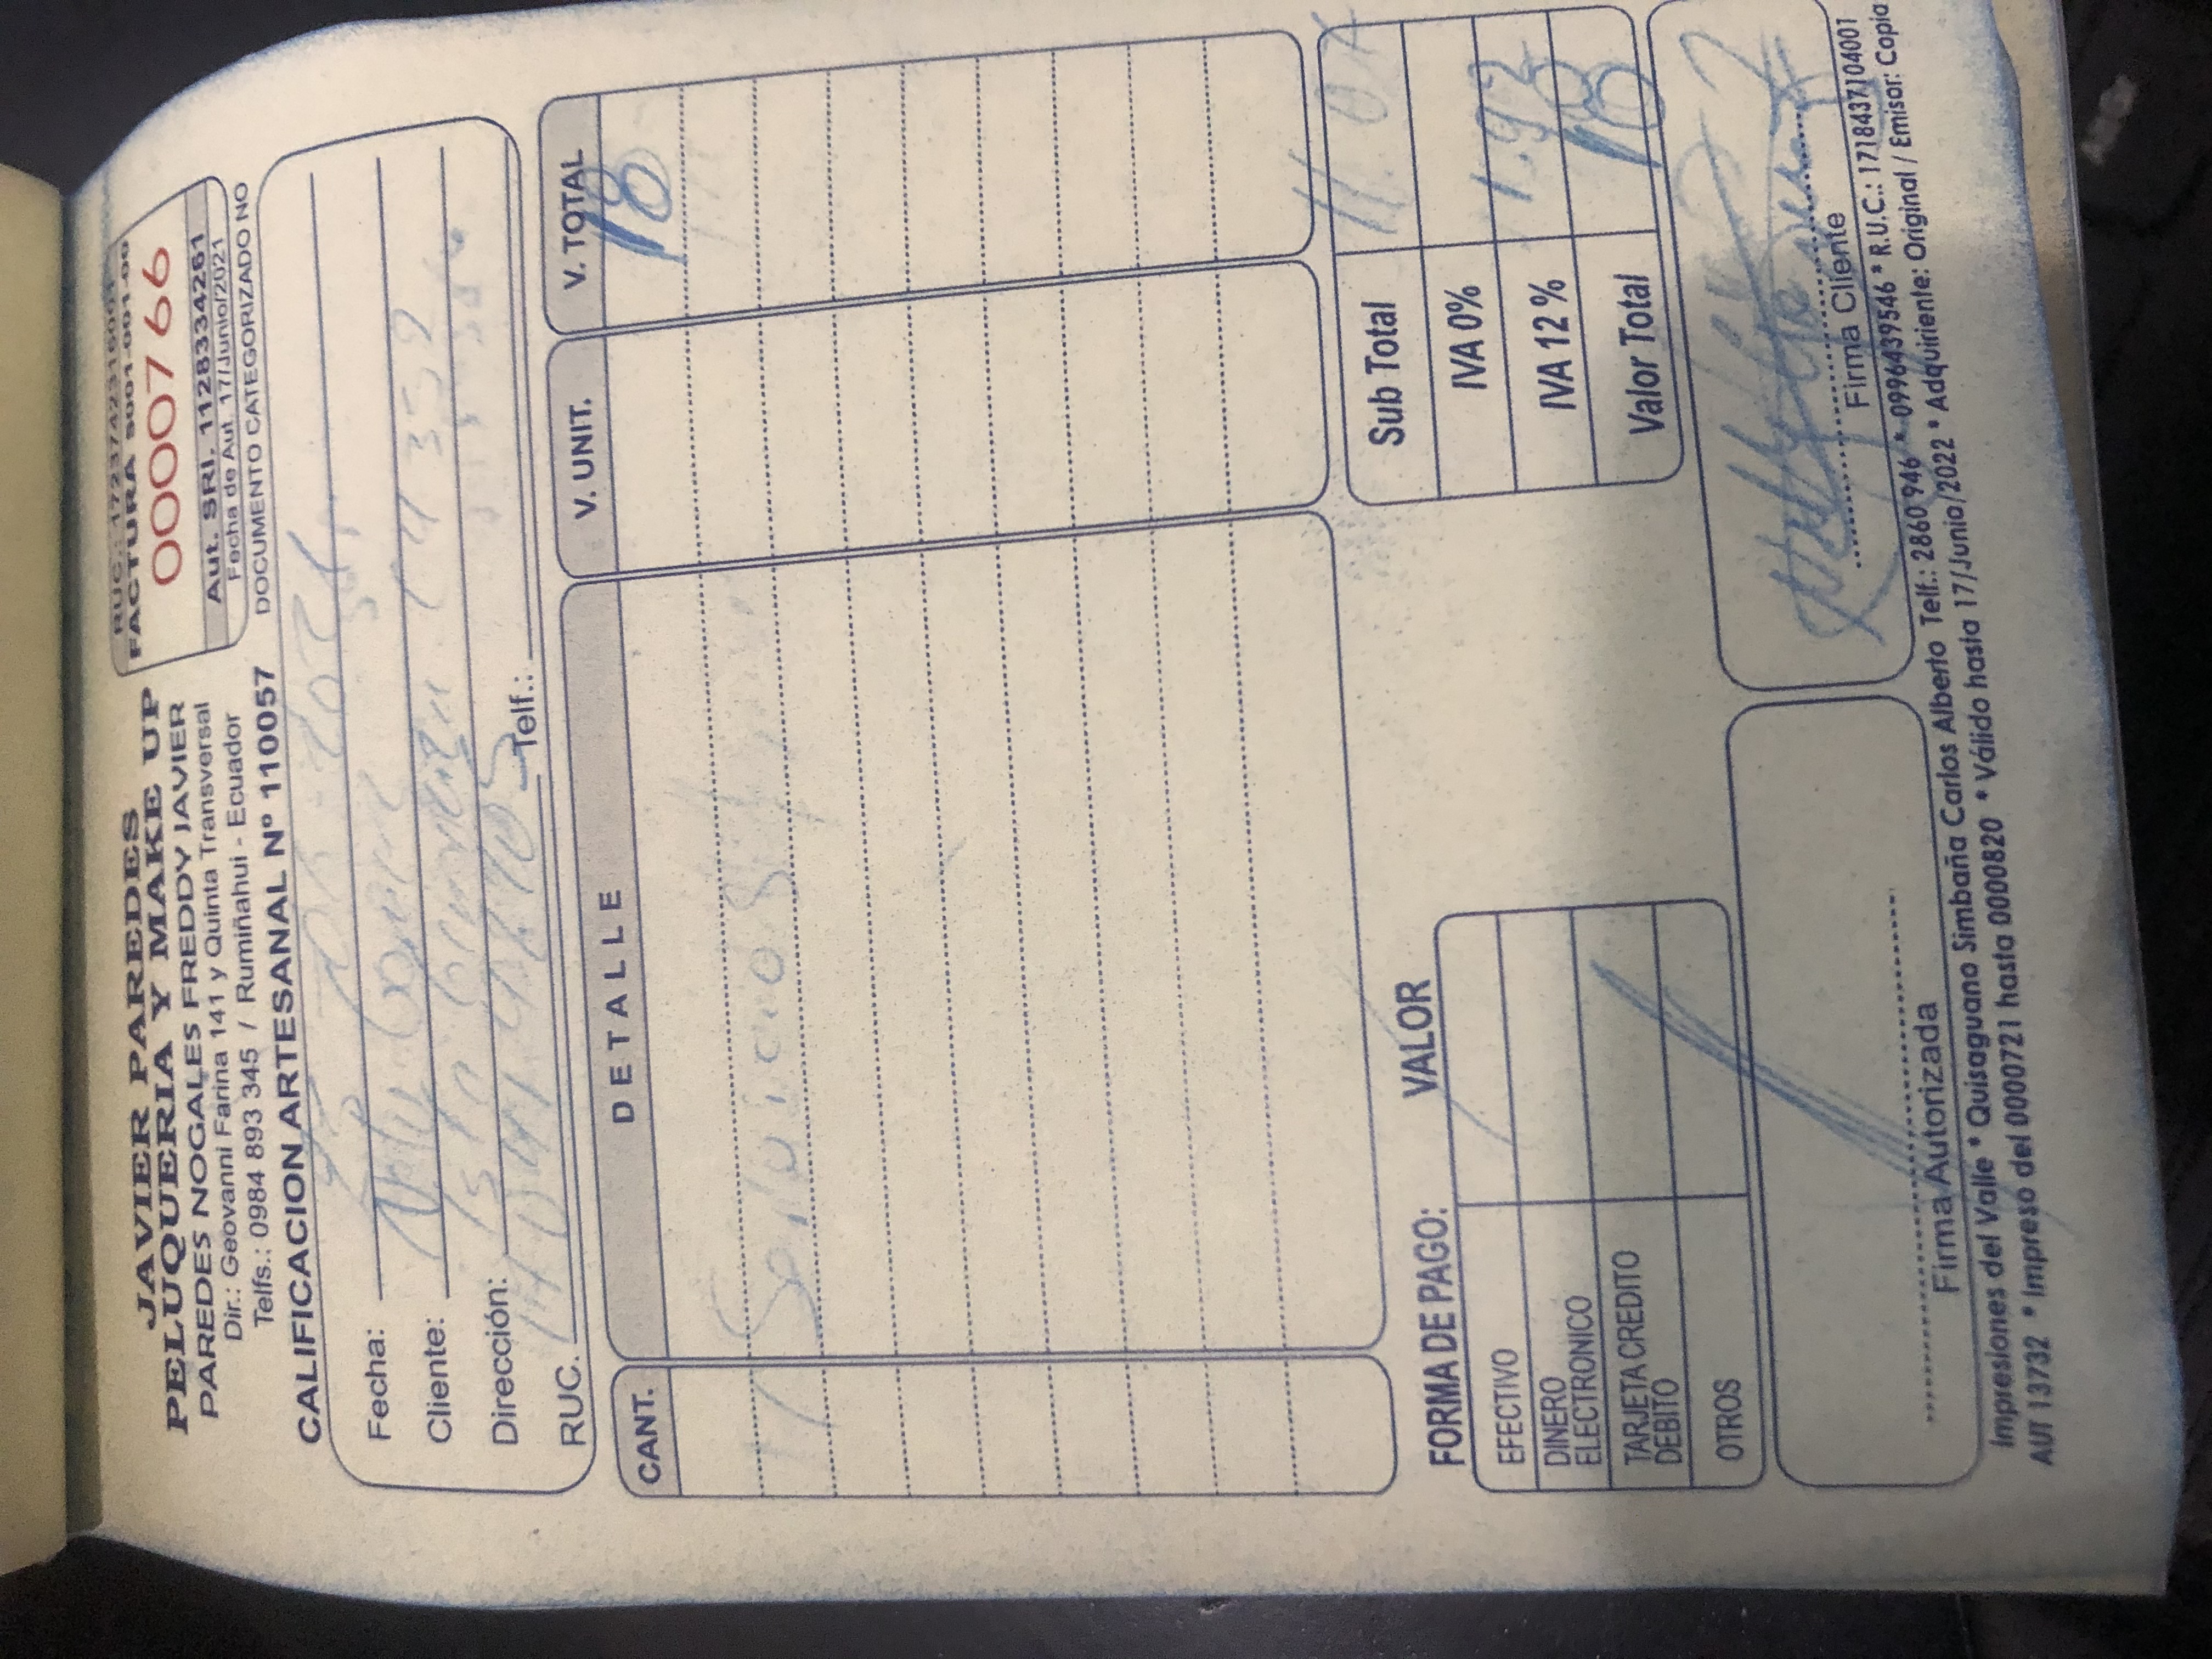 JAVIER PAREDES
PELUQUERIA Y MAKE UP
PAREDES NOGALES FREDDY JAVIER
Dir.: Geovanni Farina 141 y Quinta Transversal
Telfs.: 0984 893 345 / Rumiñahui - Ecuador
CALIFICACION ARTESANAL Nº 110057
RUC.: 1723742316001
FACTURA S001-001-00
0000766
Aut. SRI. 1128334261
Fecha de Aut. 17/Junio/2021
DOCUMENTO CATEGORIZADO NO
Fecha: 2021
Cliente: Nely
Dirección: Isla
RUC. Telf.:
CANT. DETALLE V. UNIT. V. TOTAL
18
1 Servicios
Sub Total
IVA 0%
IVA 12 % 1.92
Valor Total 18
FORMA DE PAGO: VALOR
EFECTIVO
DINERO
ELECTRONICO
TARJETA CREDITO
DEBITO
OTROS
Firma Autorizada
Firma Cliente
Impresiones del Valle * Quisaguano Simbaña Carlos Alberto Telf.: 2860 946 * 0996439546 * R.U.C.: 1718437104001
AUT 13732 * Impreso del 0000721 hasta 0000820 * Válido hasta 17/Junio/2022 * Adquiriente: Original / Emisor: Copia